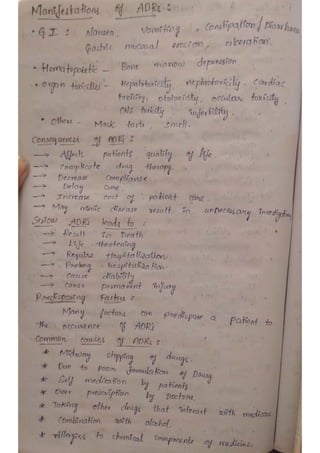 Manifestations of ADRs :
• G I : Nausea, Vomiting, Constipation / Diarrhoea
Gastric mucosal erosion, ulceration.
• Hematopoietic - Bone marrow depression
• Organ toxicities - Hepatotoxicity nephrotoxicity, Cardiac
toxicity, ototoxicity, occular toxicity,
CNS toxicity infertility.
• others - Mask taste, smell.
Consequences of ADRs :
→ Affects patients quality of life.
→ Complicate drug therapy.
→ Decrease Compliance.
→ Delay Cure.
→ Increase cost of patient care
→ May mimic disease result in unnecessary investigation
Serious ADRs leads to :
→ Result in Death
→ Life theatening
→ Requires Hospitalization
→ Prolong hospitalization
→ cause disability
→ cause permanent injury
Predisposing factors :
Many factors can predispose a patient to
the occurence of ADRs
Common causes of ADRs :
* Midway stopping of drugs.
* Due to poor formulation of Drug
* Self medication by patients
* Over prescription by Doctors.
* Taking other drugs that interact with medicine
* Combination with alcohol.
* Allergies to chemical components of medicine.